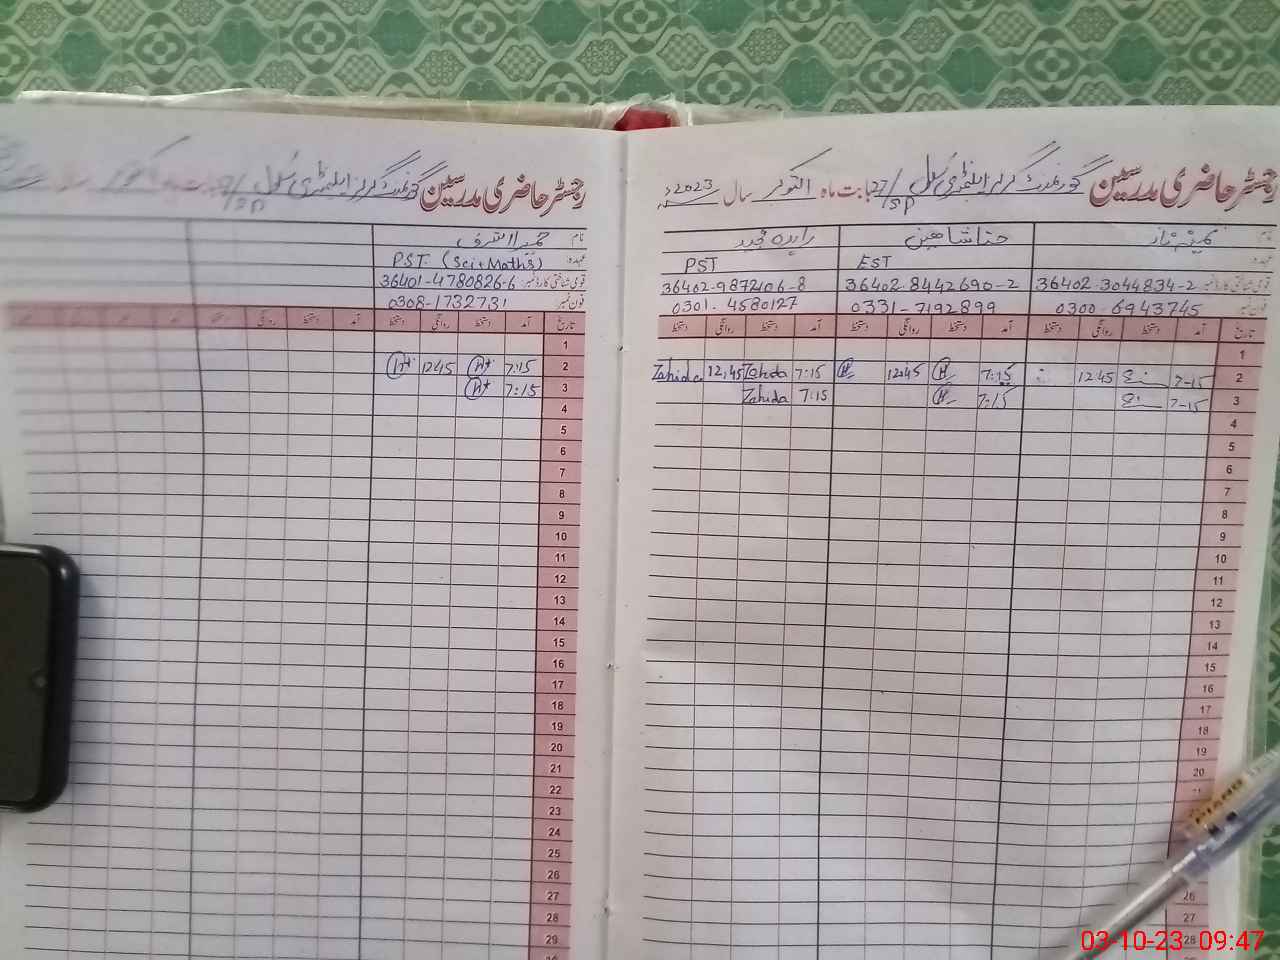 رجسٹر حاضری مدرسین گورنمنٹ گرلز ایلیمنٹری سکول 27/SP بابت ماہ اکتوبر سال 2023ء
نام ثمینہ ناز حنا شاہین زاہدہ مجید
عہدہ EST PST
قومی شناختی کارڈ نمبر 36402-3044834-2 36402-8442690-2 36402-9872106-8
فون نمبر 0300-6943745 0331-7192899 0301-4580127
تاریخ آمد دستخط روانگی دستخط آمد دستخط روانگی دستخط آمد دستخط روانگی دستخط
1
2 7-15 12 45 7:15 12:45 7:15 Zahida 12,45 Zahida
3 7-15 7:15 7:15 Zahida
4
5
6
7
8
9
10
11
12
13
14
15
16
17
18
19
20
26
27
28
PIANO
رجسٹر حاضری مدرسین گورنمنٹ گرلز ایلیمنٹری سکول
نام حمیرا اشرف
عہدہ PST (Sci+Maths)
قومی شناختی کارڈ نمبر 36401-4780826-6
فون نمبر 0308-1732731
تاریخ آمد دستخط روانگی دستخط آمد دستخط روانگی دستخط
1
2 7:15 12 45
3 7:15
4
5
6
7
8
9
10
11
12
13
14
15
16
17
18
19
20
21
22
23
24
25
26
27
28
29
03-10-23 09:47